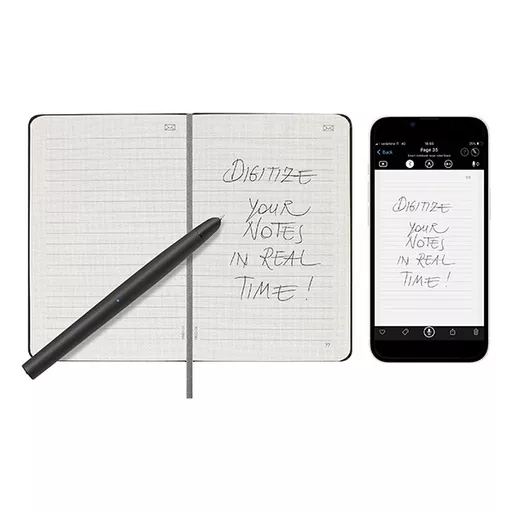 DIGITIZE
YOUR
NOTES
IN REAL
TIME!
Back
Page 35
DIGITIZE
YOUR
NOTES
IN REAL
TIME!